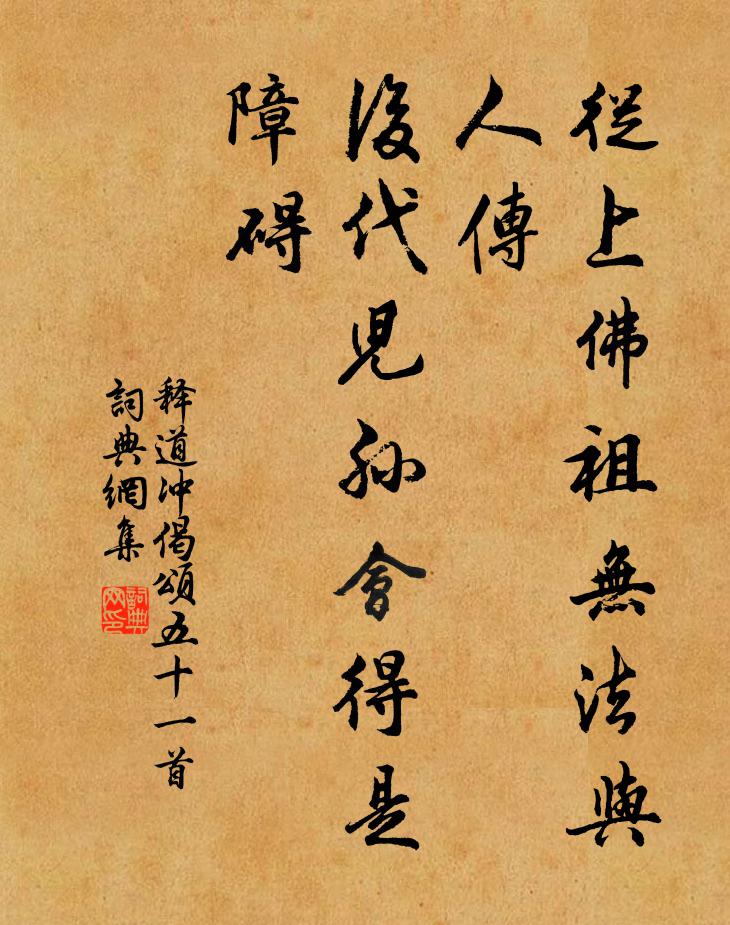 從上佛祖無法與
人傳
後代児孫會得是
障碍
释道冲偈頌五十一首
詞典網集
詞典网印